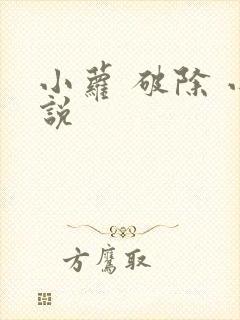 小蘿 破除 小
說
方鷹取